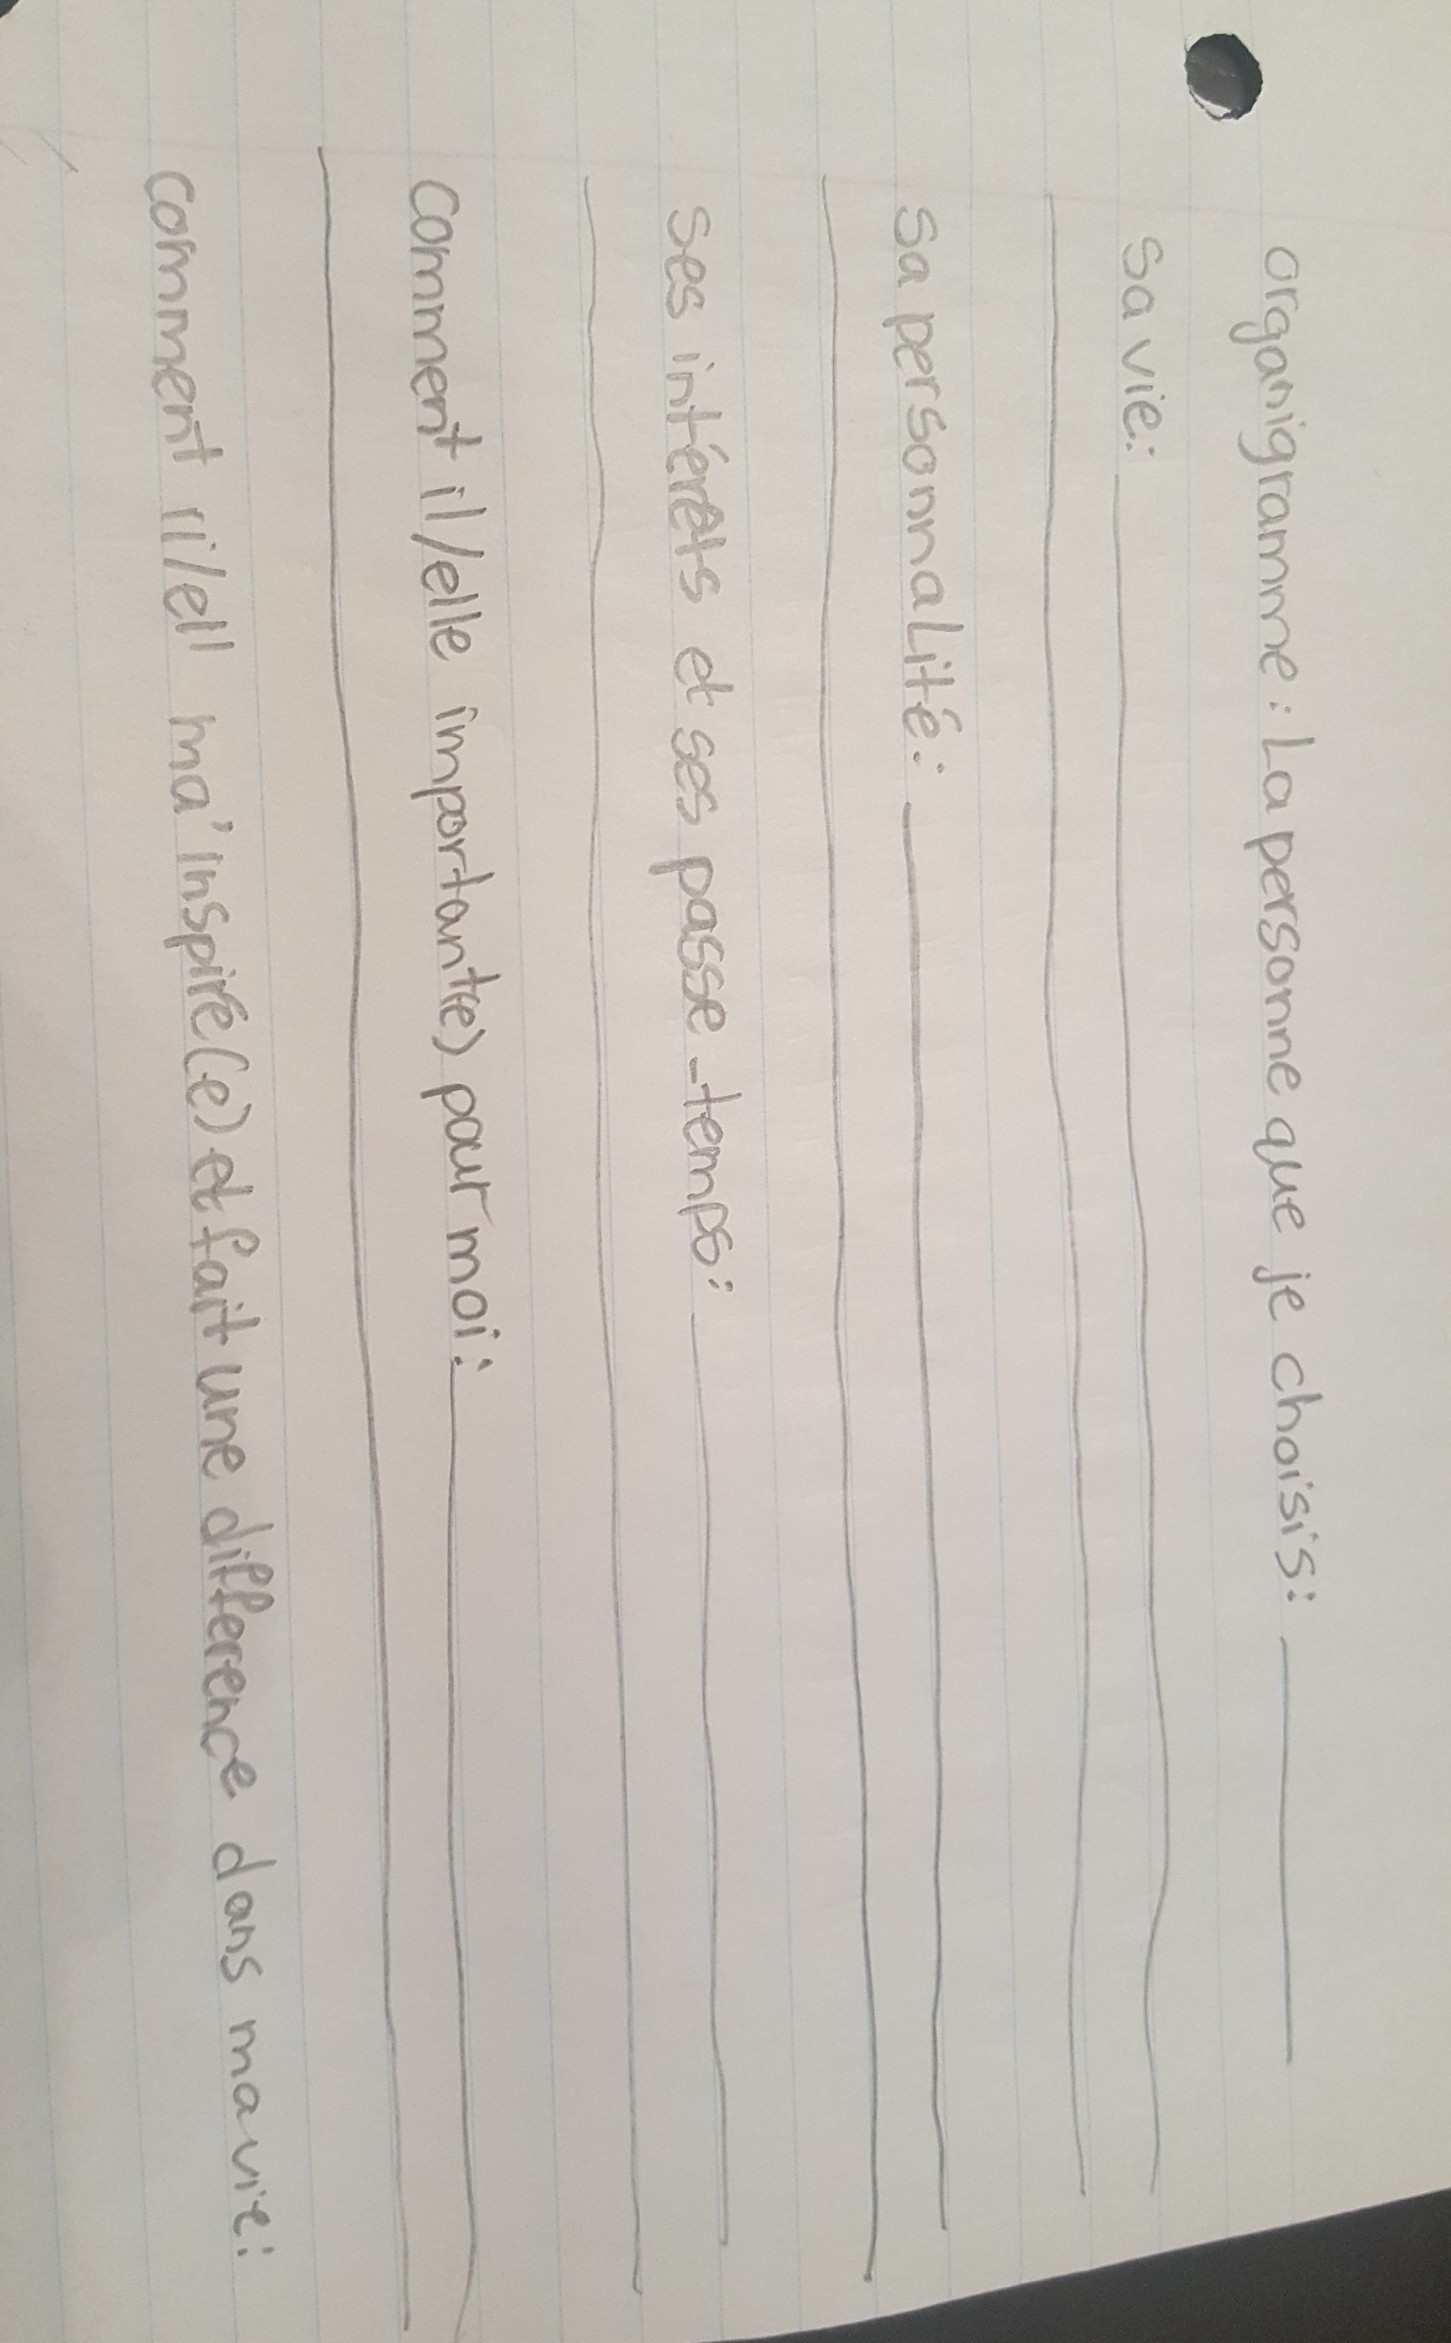 organigramme : La personne que je choisis:
sa vie:
sa personnaLité:
ses intérêts et ses passe-temps:
comment il/elle important(e) pour moi:
comment il/ell ma'inspiré(e) et fait une différence dans ma vie: